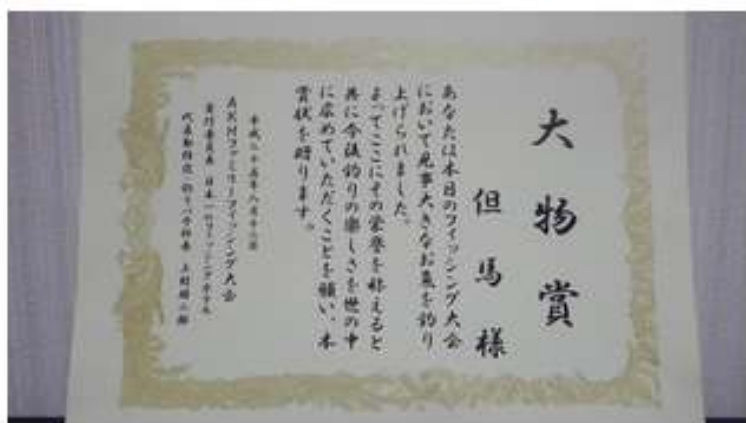 大物賞
但馬様
あなたは本日のフィッシング大会
において見事大きなお魚を釣り
上げられました。
よってここにその栄誉を称えると
共に今後釣りの楽しさを世の中
に広めていただくことを願い、本
賞状を贈ります。
平成二十五年八月十
ファミリーフィッシング大会
実行委員長 日本一のフィッシング
代表取締役